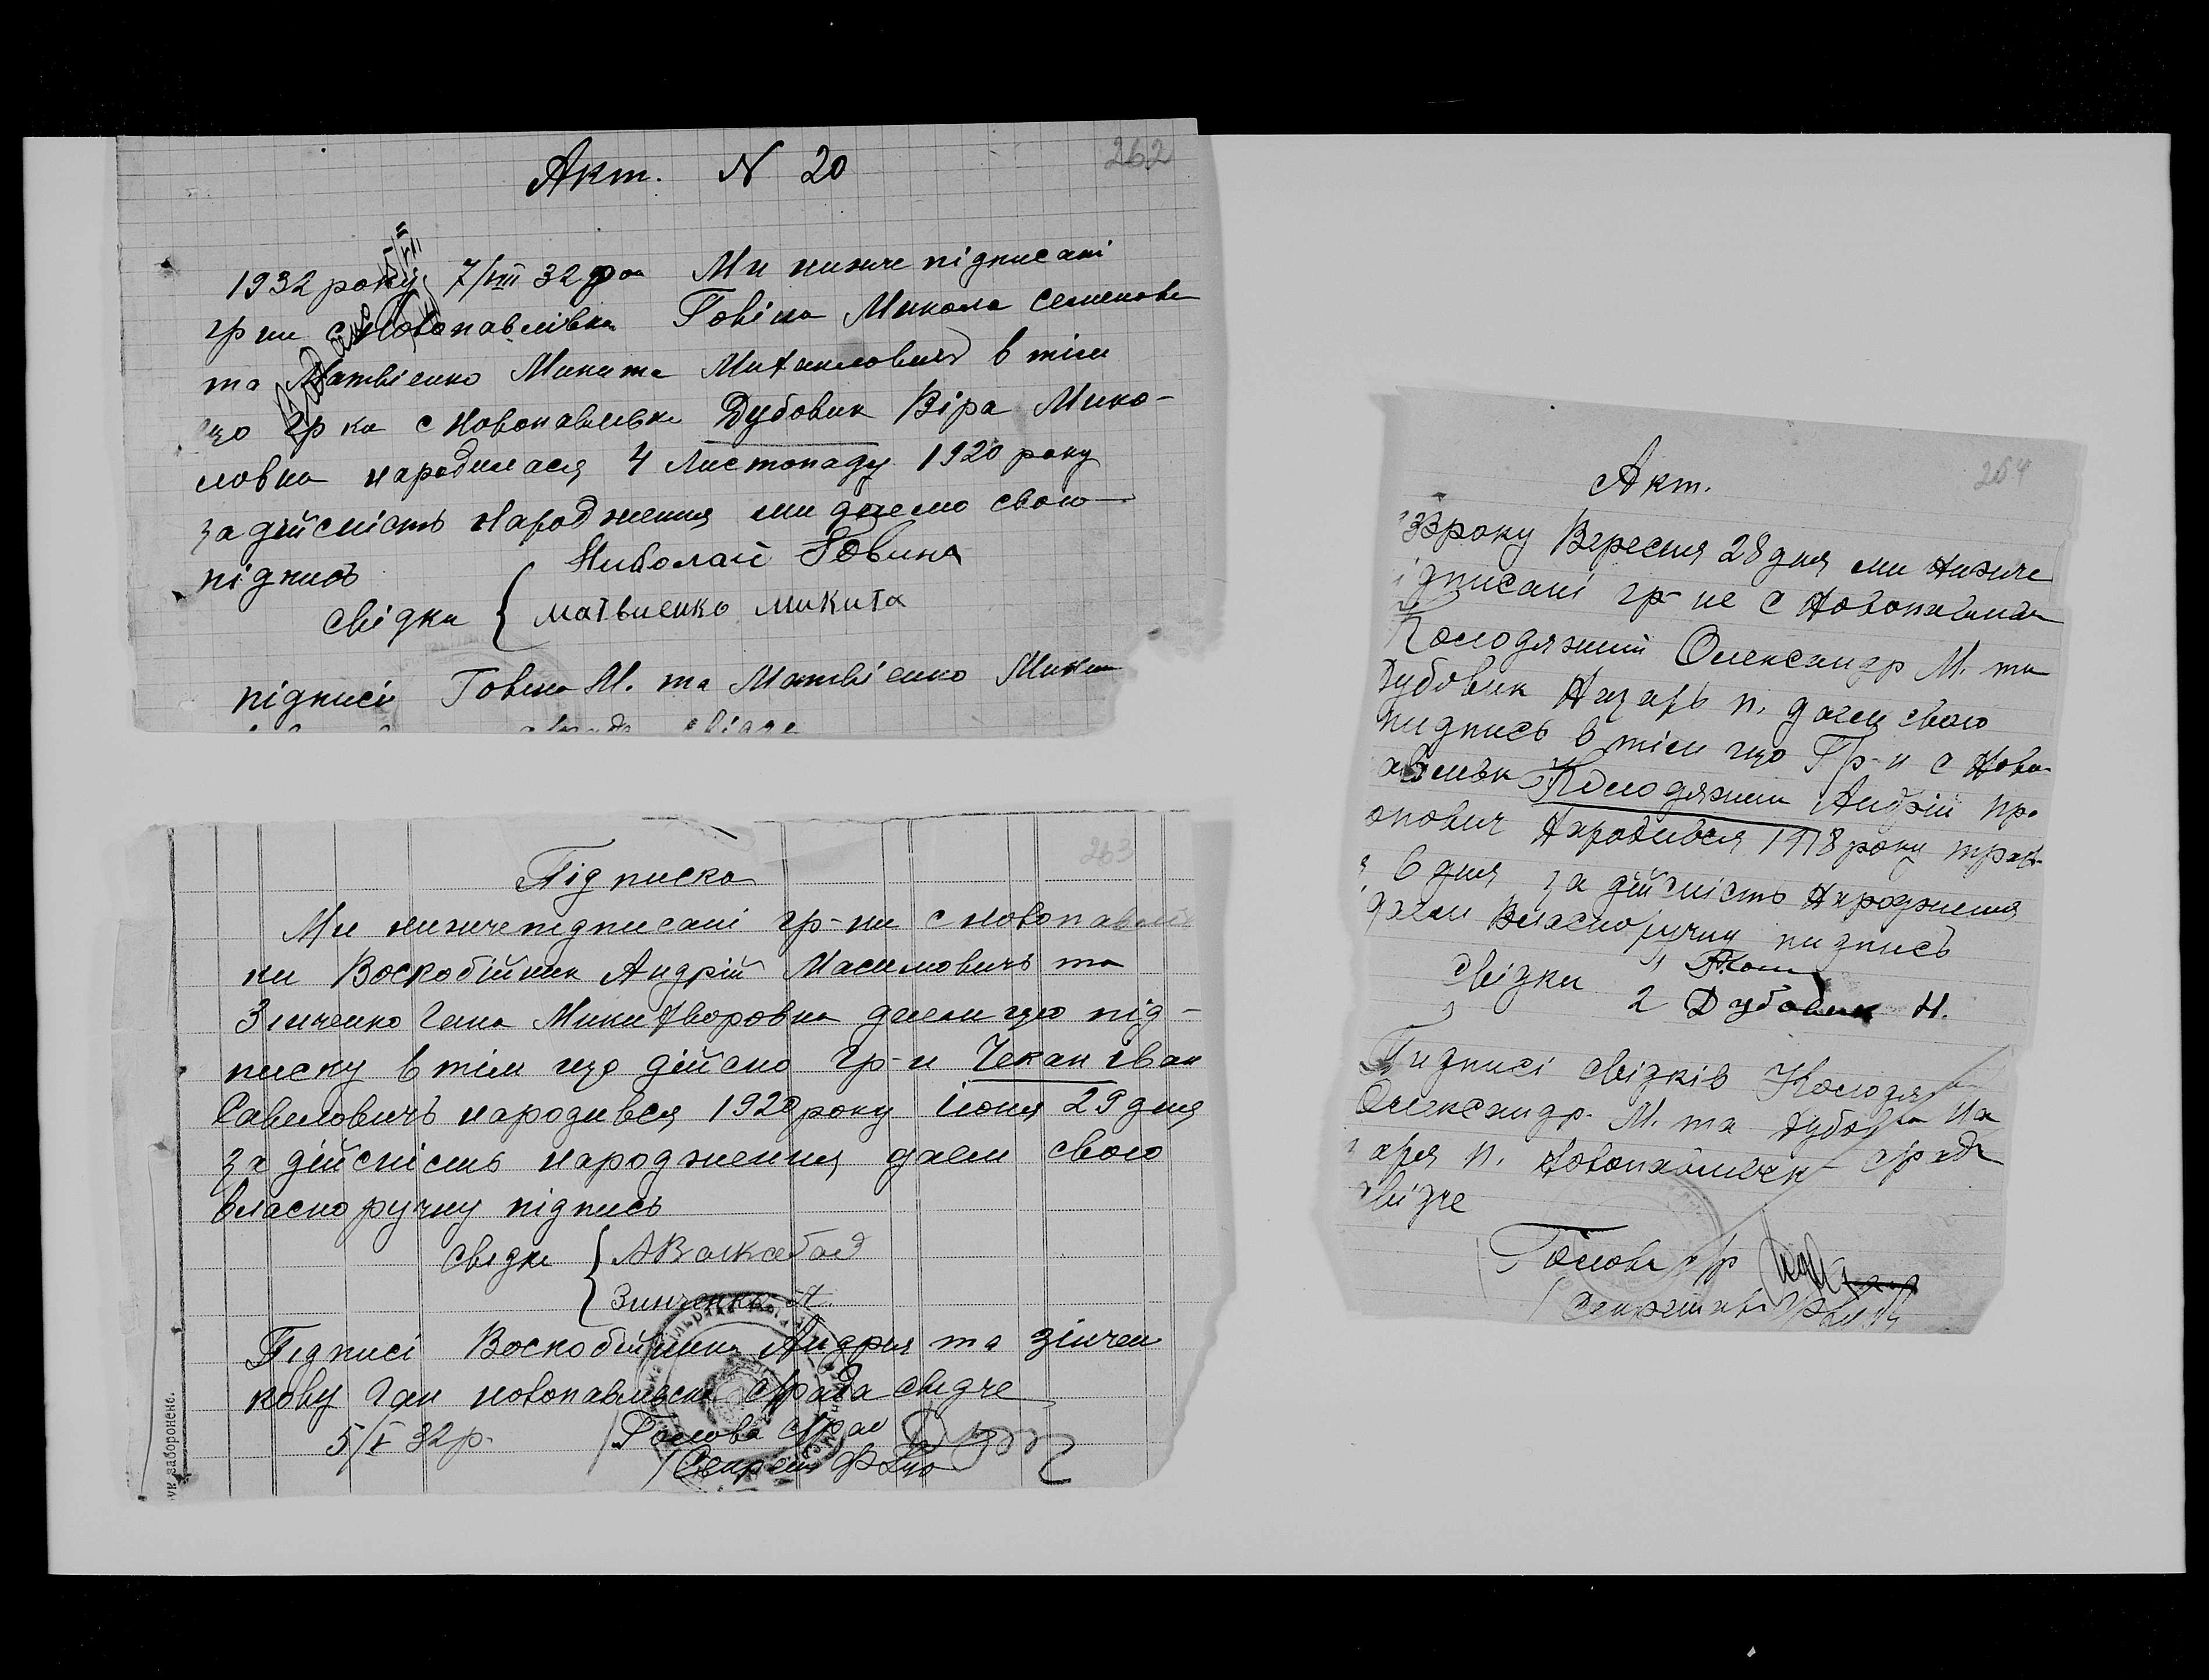 262
Акт. N 20
1932 року 7/VIII 32 Ми нижче підписані
гр ни с Новопавлівки Говіна Микола Семенови
та Матвіенко Микита Михаиловичь в тім
що гр ка с Новопавлівки Дубовик Віра Мико-
ловна народилася 4 Листопаду 1920 року
за дійсність народження ми даемо свою
підпись
Николай Говина
свідки { Матвиенко Микита
підписи Говина М. та Матвіенко Микит
263
Підписка
Ми нижчепідписані гр-ни с Новопавлів
ки Воскобійник Андрій Масимовичь та
Зінченко Гана Никифоровна даем цю під-
писку в тім що дійсно гр-н Чекан Іван
Савеловичь народився 1920 року іюня 29 дня
за дійсність народження даем свою
власноручну підпись
свідки { А Воскобой
Зинченко
Підписі Воскобійника Андрія та Зінчен
кову Ган Новопавлівска с/рада свідче
5/V 32 р. Голова с/рад
Секрет
ук заборонено.
264
Акт.
33 року Вересня 28 дня ми нижче
ідписані гр-не с Новопавливки
Колодяжний Олександр М. та
Дубовик Назарь П. даем свою
пидпись в тім що Гр-н с Ново
авливк Колодяжни Андрій Про
опович Народився 1918 року трав
6 дня за дійсність Народження
даем Власноручну пидпись
свідки 1
2 Дубовик Н.
Пидписі свідків Колодяж
Олександр. М. та Дубовик На
аря П. Новопавливск с/рада
свідче
Голова с/р
Секретарь